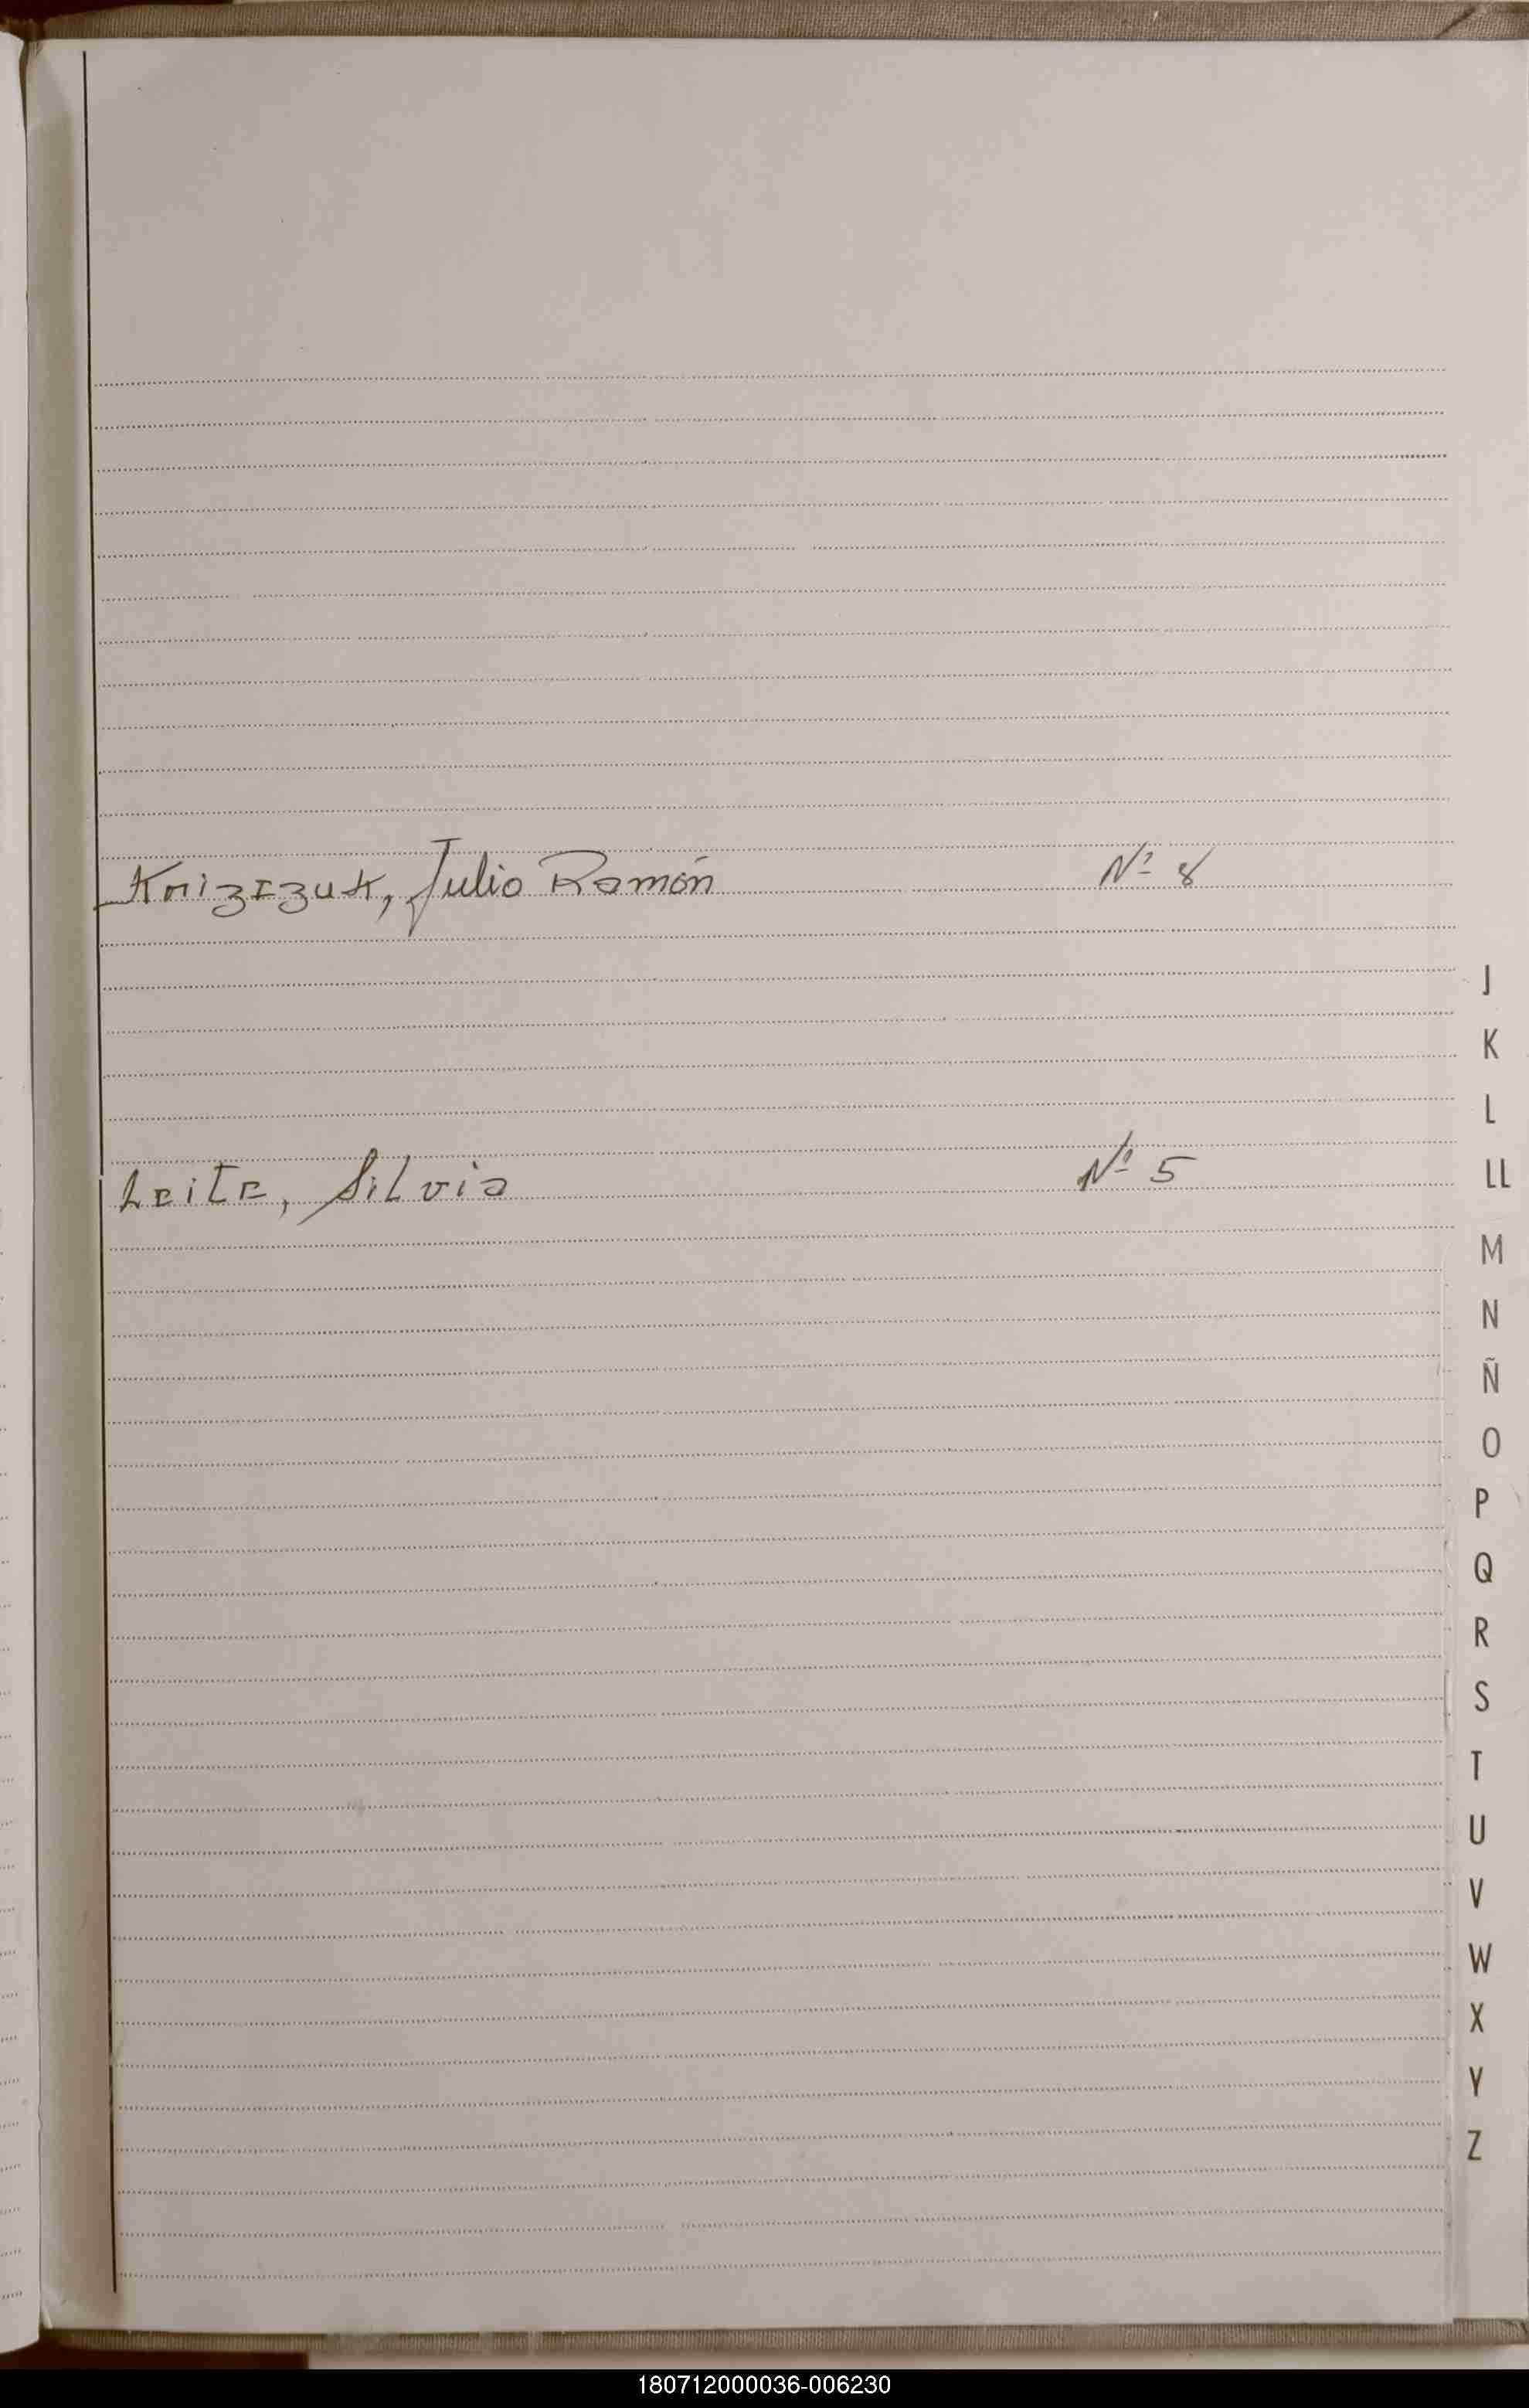 Knizizuk, Julio Ramón Nº 8
J
K
L
Leite, Silvia Nº 5
LL
M
N
Ñ
O
P
Q
R
S
T
U
V
W
X
Y
Z
180712000036-006230